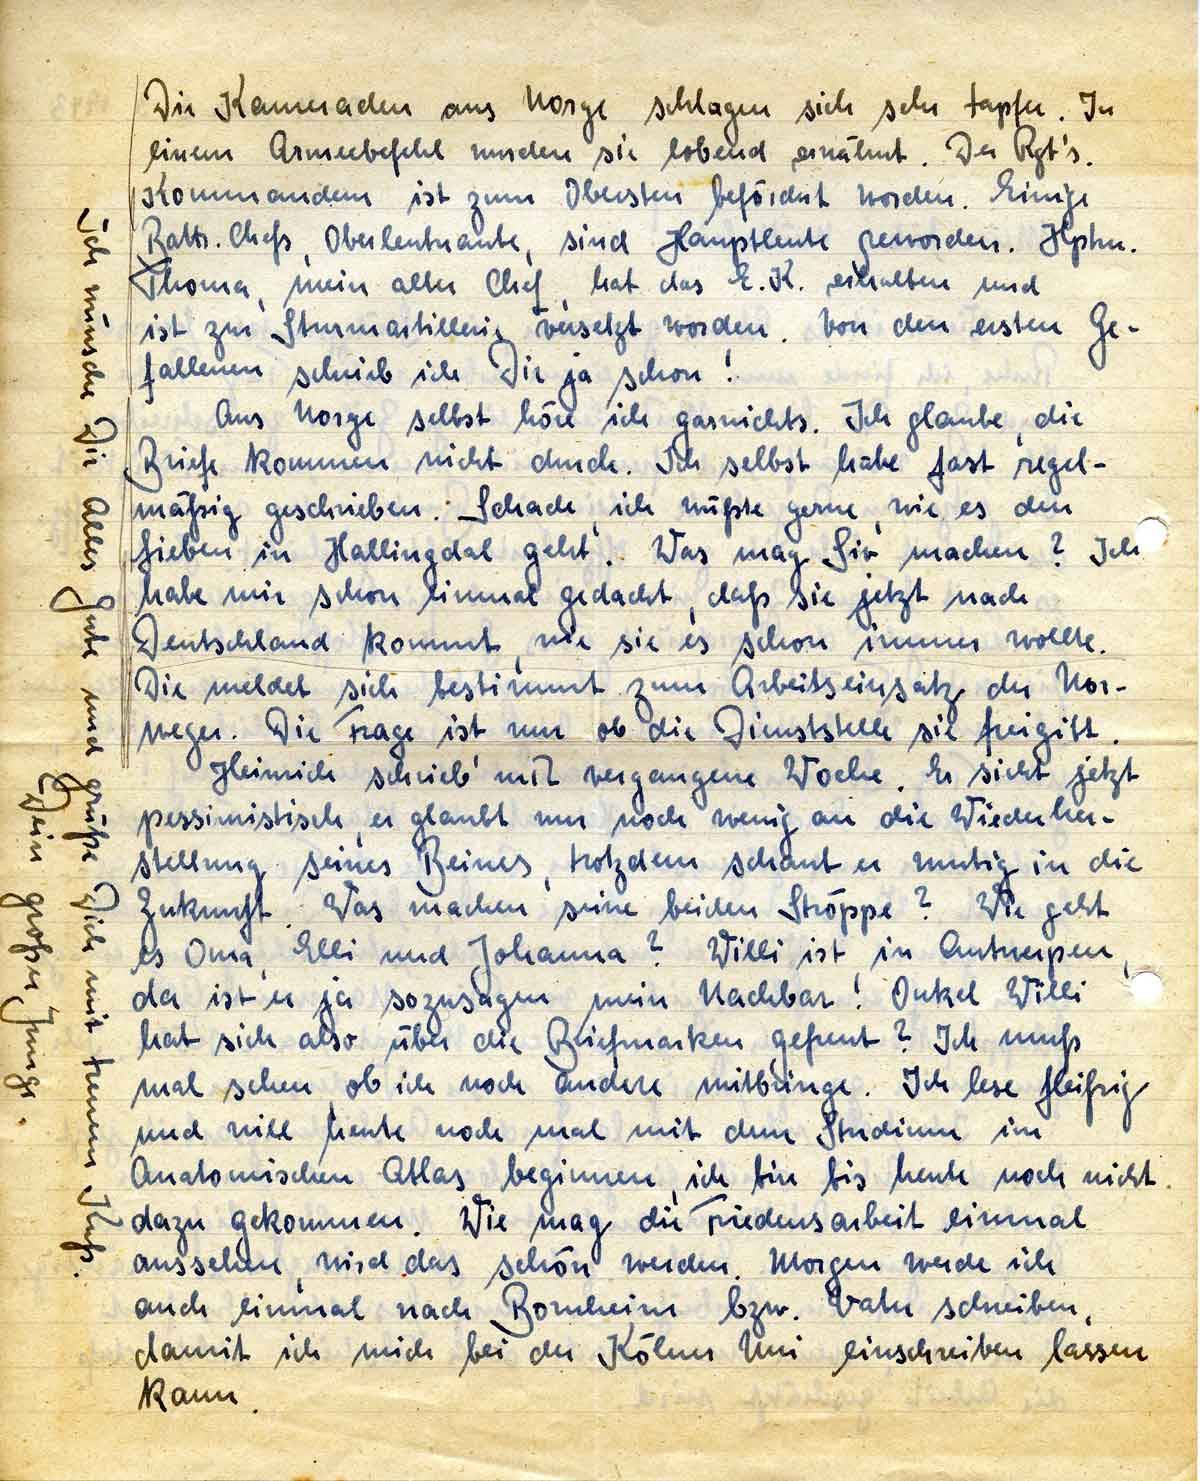 Die Kameraden aus Norge schlagen sich sehr tapfer. In
einem Armeebefehl wurden sie lobend erwähnt. Der Rgt's.
Kommandeur ist zum Obersten befördert worden. Einige
Battr. Chefs, Oberleutnante, sind Hauptleute geworden. Hptm.
Thoma, mein alter Chef, hat das E.K. erhalten und
ist zur Sturmartillerie versetzt worden. Von den ersten Ge-
fallenen schrieb ich Dir ja schon!
Aus Norge selbst höre ich garnichts. Ich glaube, die
Briefe kommen nicht durch. Ich selbst habe fast regel-
mäßig geschrieben. Schade, ich wüßte gerne, wie es den
Lieben in Hallingdal geht. Was mag Siv machen? Ich
habe mir schon einmal gedacht, daß sie jetzt nach
Deutschland kommt, wie sie es schon immer wollte.
Die meldet sich bestimmt zum Arbeitseinsatz der Nor-
weger. Die Frage ist nur ob die Dienststelle sie freigibt.
Heinrich schrieb mir vergangene Woche. Er sieht jetzt
pessimistisch, er glaubt nur noch wenig an die Wiederher-
stellung seines Beines, trotzdem schaut er mutig in die
Zukunft. Was machen seine beiden Ströppe? Wie geht
es Oma, Elli und Johanna? Willi ist in Antwerpen,
da ist er ja sozusagen mein Nachbar! Onkel Willi
hat sich also über die Briefmarken gefreut? Ich muß
mal sehen, ob ich noch andere mitbringe. Ich lese fleißig
und will heute noch mal mit dem Studium im
Anatomischen Atlas beginnen, ich bin bis heute noch nicht
dazu gekommen. Wie mag die Friedensarbeit einmal
aussehen, wird das schön werden. Morgen werde ich
auch einmal nach Bornheim bzw. Vater schreiben,
damit ich mich bei der Kölner Uni einschreiben lassen
kann.
Ich wünsche Dir alles Gute und grüße Dich mit treuem Kuß.
Dein großer Junge.